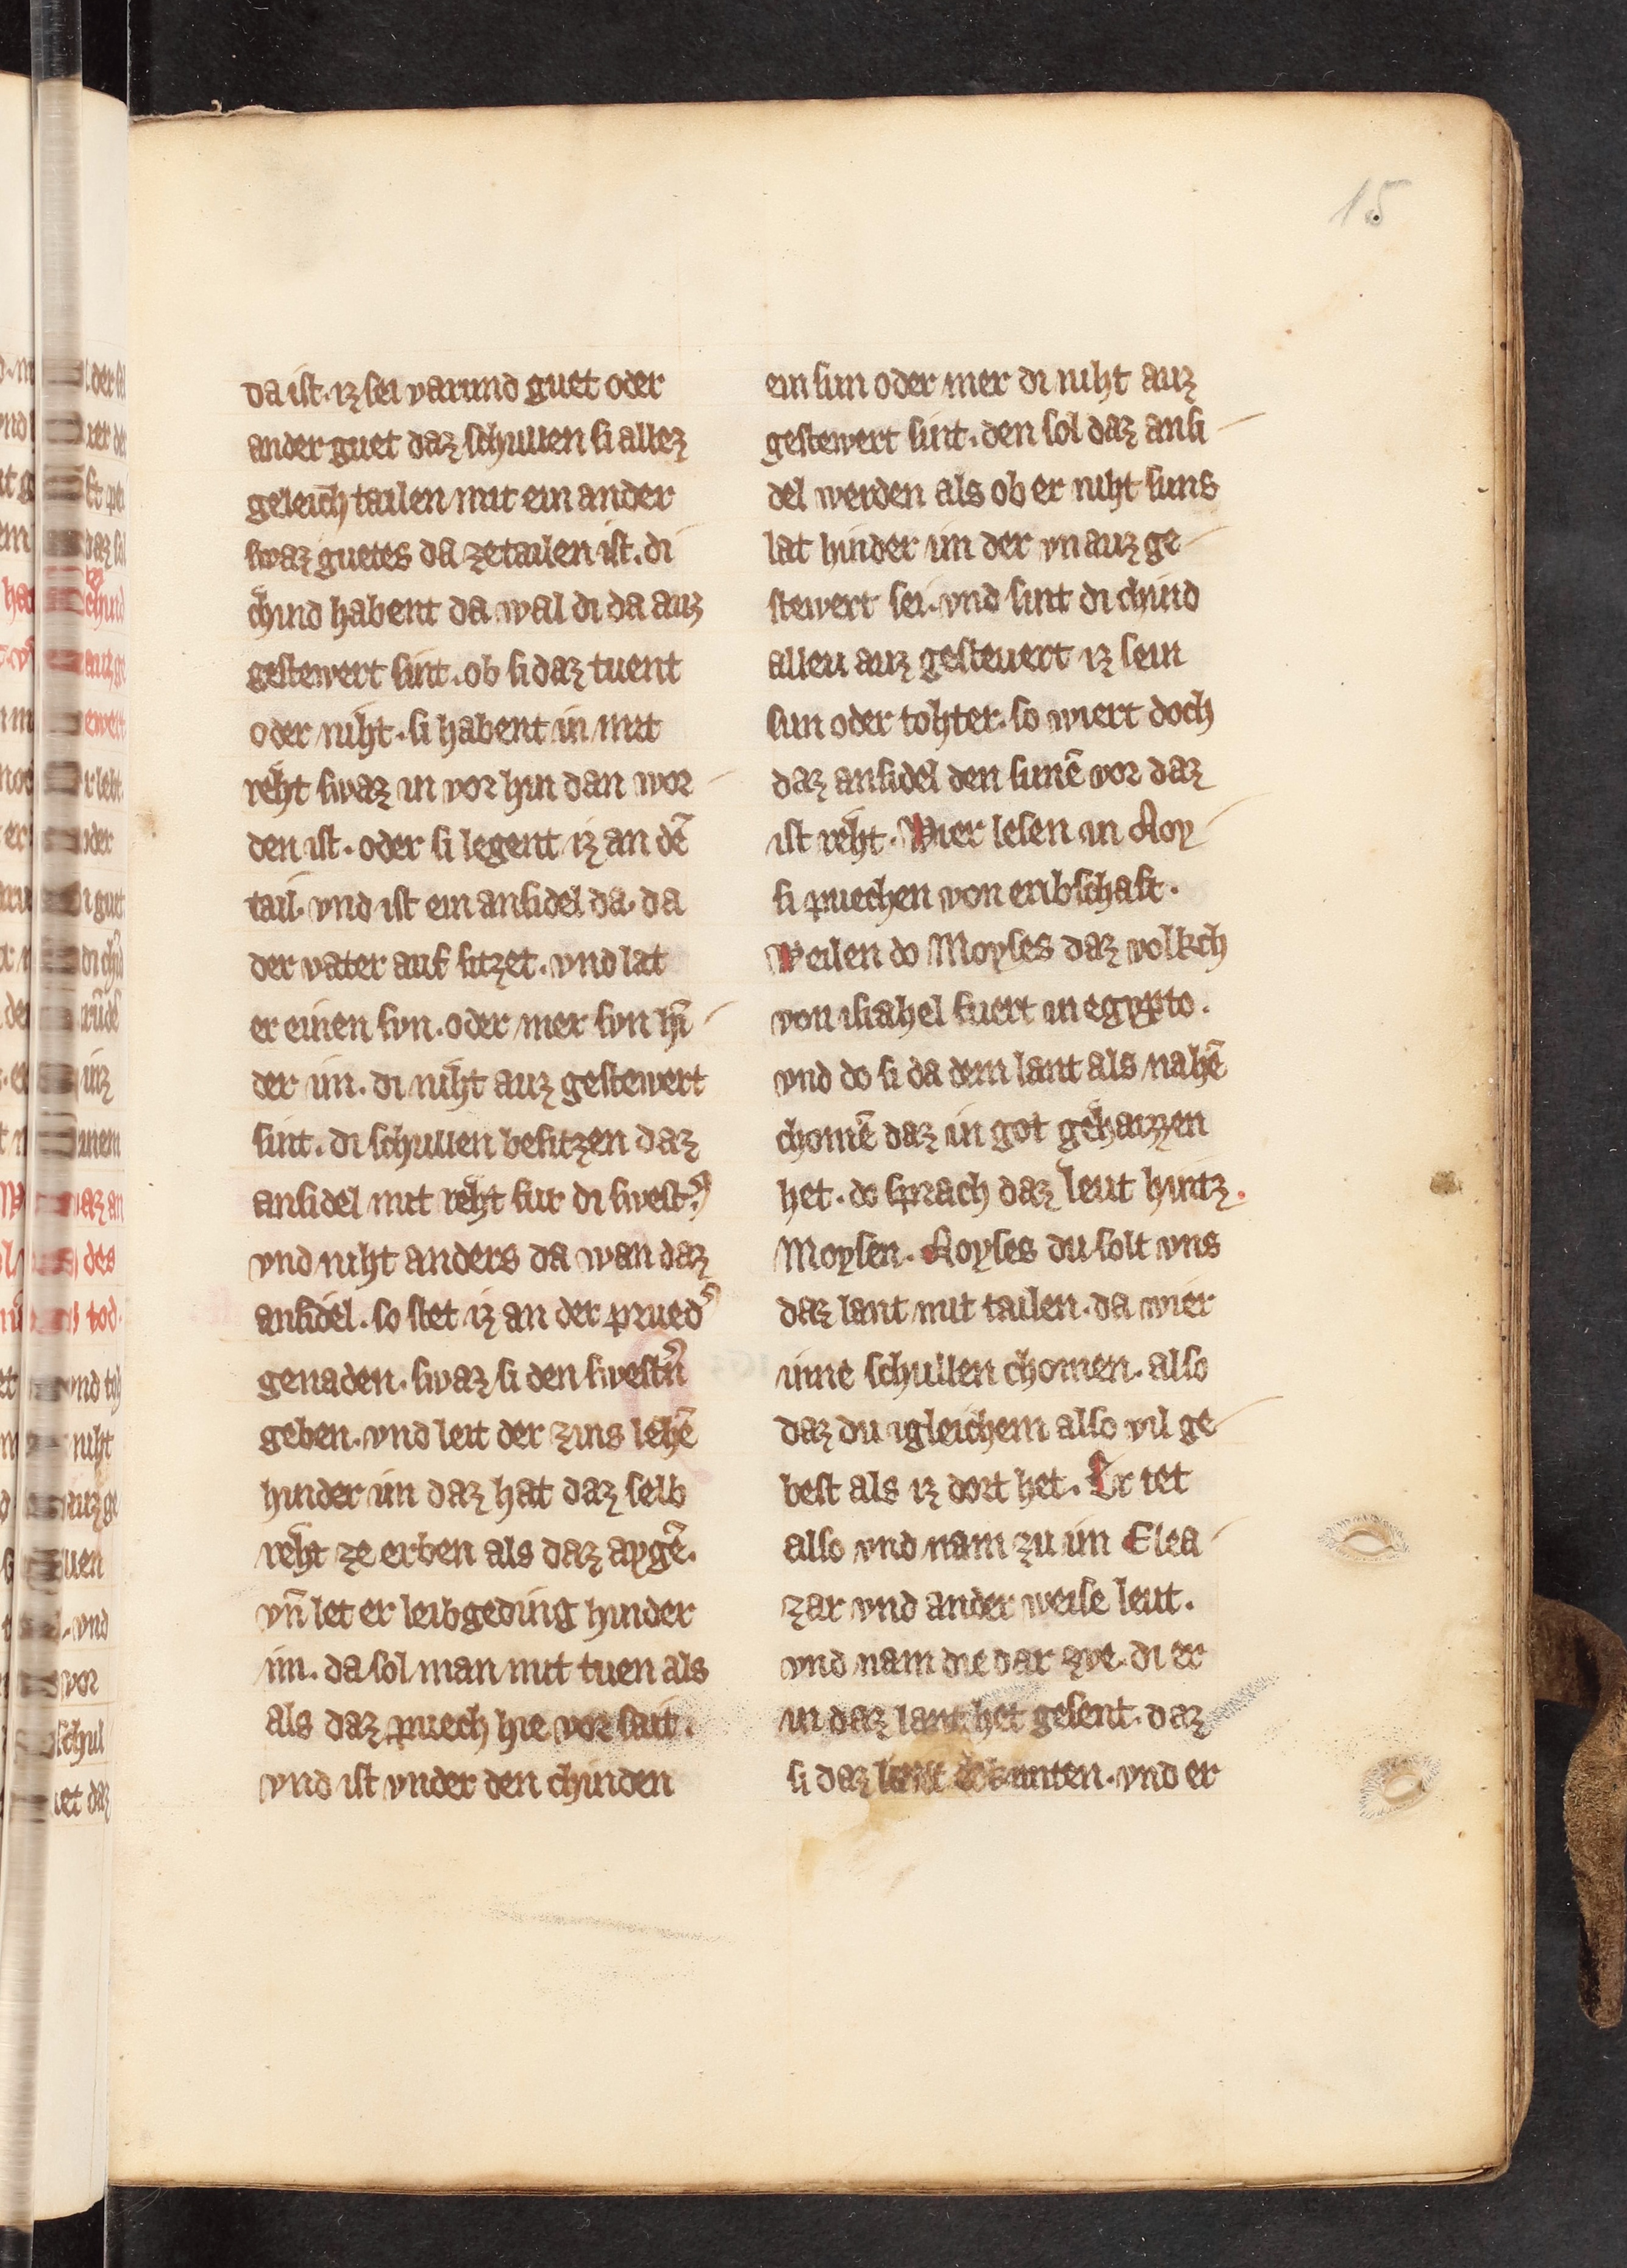 15
da ist. iz sei varund guet oder
ander guet daz schullen si allez
geleich tailen mit ein ander
swaz guetes da ze tailen ist. di
chind habent da wal di da auz
gestewert sint. ob si daz tuent
oder niht. si habent in mit
reht swaz in vor hin dan wor
den ist. oder si legent iz an dē
tail. vnd ist ein ansidel da. da
der vater auf sitzet. vnd lat
er einen svn. oder mer svn hī
der im. di niht auz gestewert
sint. di schullen besitzen daz
ansidel mit reht fur di swest͛
vnd niht anders da wan daz
ansidel. so stet iz an der prued͛
genaden. swaz si den swest͛n
geben. vnd leit der zins lehē
hinder im daz hat daz selb
reht ze erben als daz aygē.
vn̄ let er leibgeding hinder
im. da sol man mit tuen als
als daz puech hie vor sait.
vnd ist vnder den chinden
ein sun oder mer di niht auz
gestewert sint. den sol daz ansi
del werden als ob er niht suns
lat hinder im der vnauz ge
stewert sei. vnd sint di chind
alleu auz gesteuert iz sein
sun oder tohter. so wiert doch
daz ansidel den sunē vor daz
ist reht. Wier lesen in Moy
si puechen von eribschaft.
Weilen do Moyses daz volkch
von israhel fuert in egypto.
vnd do si da dem lant als nahē
chomē daz in got gehaizzen
het. do sprach daz leut hintz
Moysen. Moyses du solt vns
daz lant mit tailen. da wier
inne schullen chomen. also
daz du igleichem also vil ge
best als iz dort het. Er tet
also vnd nam zu im Elea
zar vnd ander weise leut.
vnd nam die dar zve. di er
in daz lant het gesent. daz
si daz lant vnd er